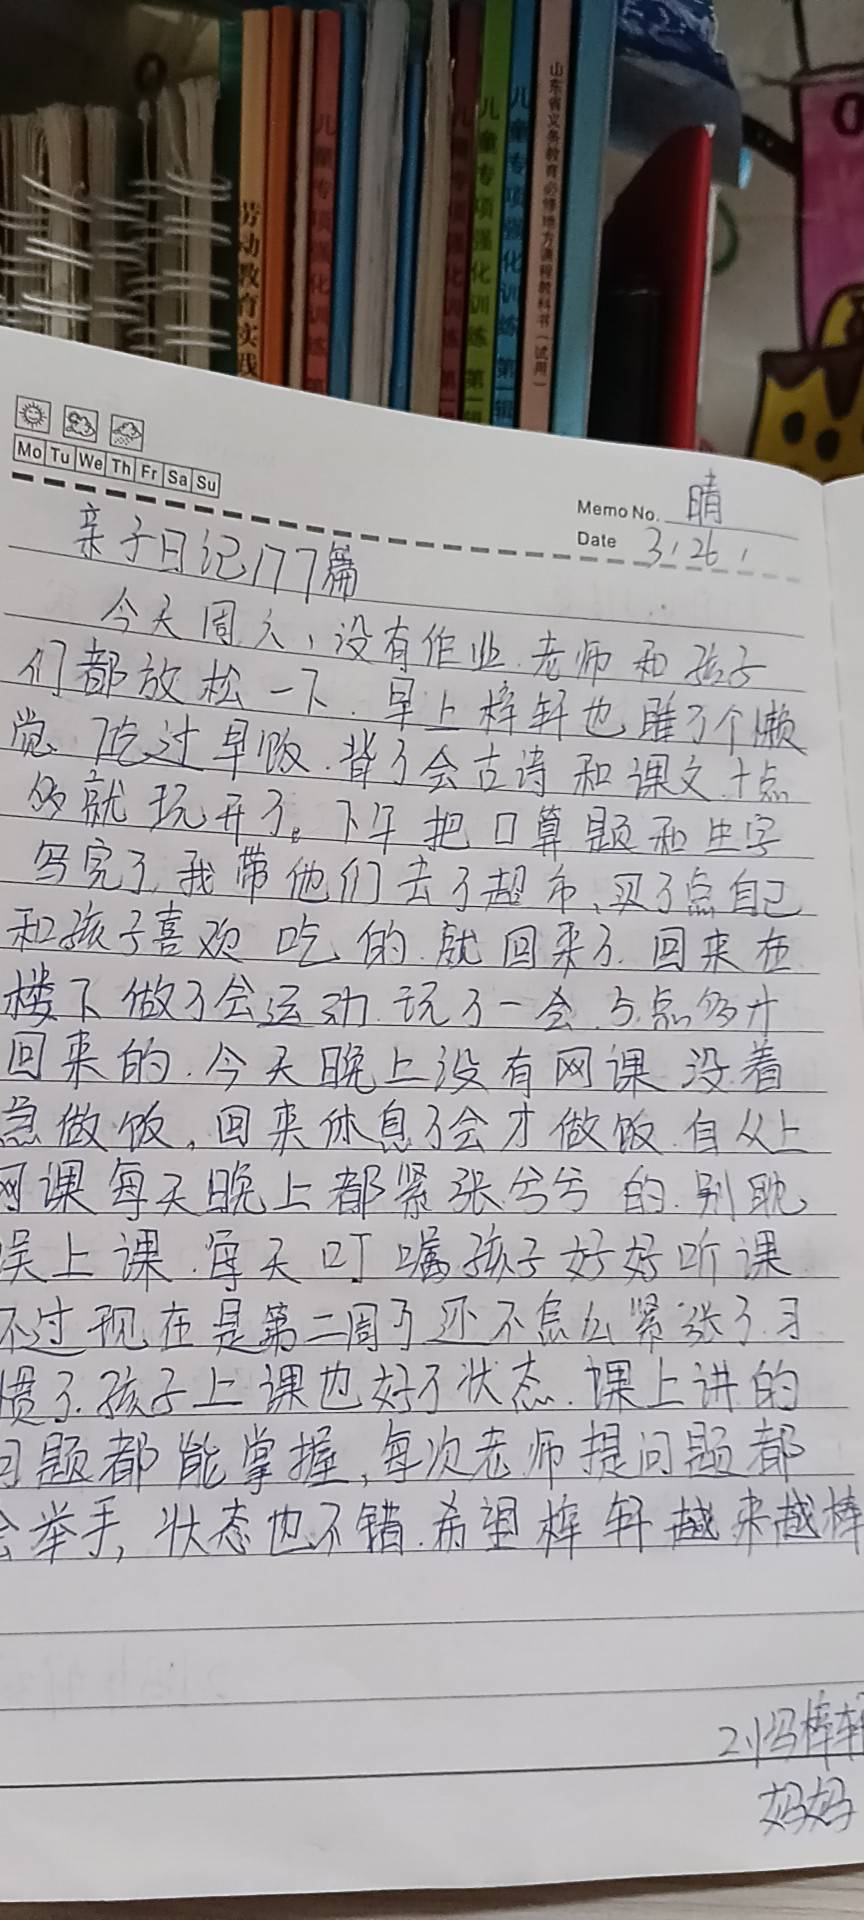 劳动教育实践
儿童专项强化训练 第
儿童专项强化训练 第一辑
儿童专项强化训练 第一辑
山东省义务教育必修地方课程教科书(试用)
Mo Tu We Th Fr Sa Su
Memo No. 晴
Date 3.26.
亲子日记177篇
今天周六,没有作业.老师和孩子
们都放松一下.早上梓轩也睡了个懒
觉.吃过早饭.背了会古诗和课文.十点
多就玩开了。下午把口算题和生字
写完了.我带他们去了超市,买了点自己
和孩子喜欢吃的.就回来了.回来在
楼下做了会运动.玩了一会.5点多才
回来的.今天晚上没有网课.没着
急做饭,回来休息了会才做饭.自从上
网课每天晚上都紧张兮兮的.别耽
误上课.每天叮嘱孩子好好听课
不过现在是第二周了还不怎么紧张了.习
惯了.孩子上课也好了状态.课上讲的
问题都能掌握,每次老师提问题都
会举手,状态也不错.希望梓轩越来越棒
2.1冯梓轩
妈妈